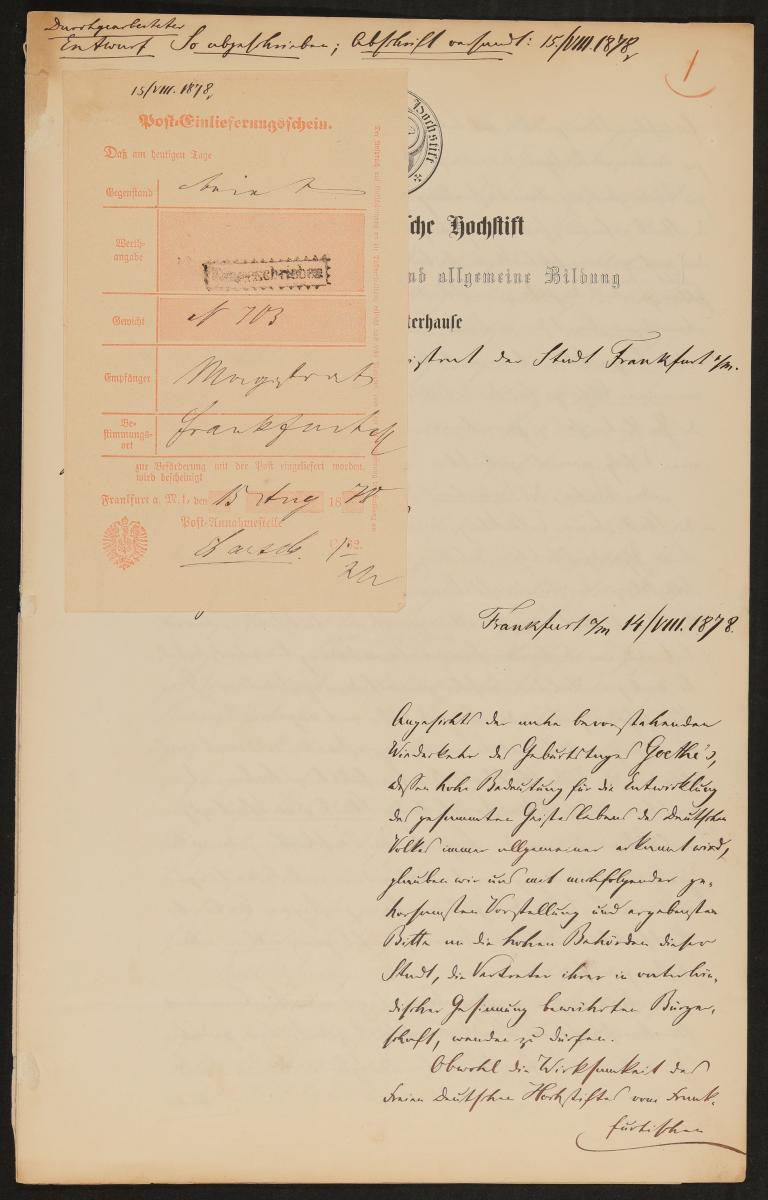 Durchgearbeiteter
Entwurf So abgeschrieben; Abschrift versandt: 15/VIII.1878,
1
15/VIII. 1878,
Post-Einlieferungsschein.
Daß am heutigen Tage
Gegenstand
Werth-
angabe
Eingeschrieben
Gewicht N 703
Empfänger Magistrat
Be-
stimmungs-
ort Frankfurt
zur Beförderung mit der Post eingeliefert worden,
wird bescheinigt
Frankfurt a. M. 1., den 15 Aug 1878
Post-Annahmestelle
C. 62.
Hochstift
sche Hochstift
nd allgemeine Bildung
terhause
gistrat der Stadt Frankfurt a/m.
Frankfurt a/m 14/VIII. 1878.
Angesichts der nahe bevorstehenden
Wiederkehr des Geburtstages Goethe's,
dessen hohe Bedeutung für die Entwicklung
des gesammten Geisteslebens des Deutschen
Volkes immer allgemeiner erkannt wird,
glauben wir uns mit nachfolgender ge-
horsamsten Vorstellung und ergebensten
Bitte an die hohen Behörden dieser
Stadt, die Vertreter ihrer in vaterlän-
discher Gesinnung bewährten Bürger-
schaft, wenden zu dürfen.
Obwohl die Wirksamkeit des
Freien Deutschen Hochstiftes vom Frank-
furtischen